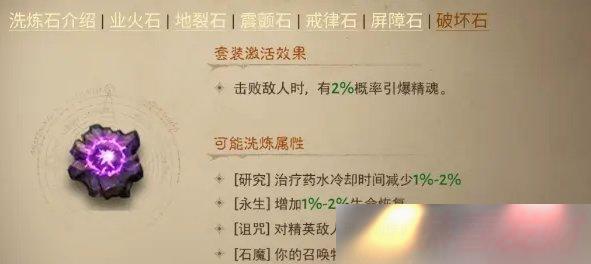 洗炼石介绍 | 业火石 | 地裂石 | 震颤石 | 戒律石 | 屏障石 | 破坏石
套装激活效果
击败敌人时，有2%概率引爆精魂。
可能洗炼属性
[研究] 治疗药水冷却时间减少1%-2%
[永生] 增加1%-2%生命恢复
[诅咒] 对精英敌
[石魔] 你的召唤